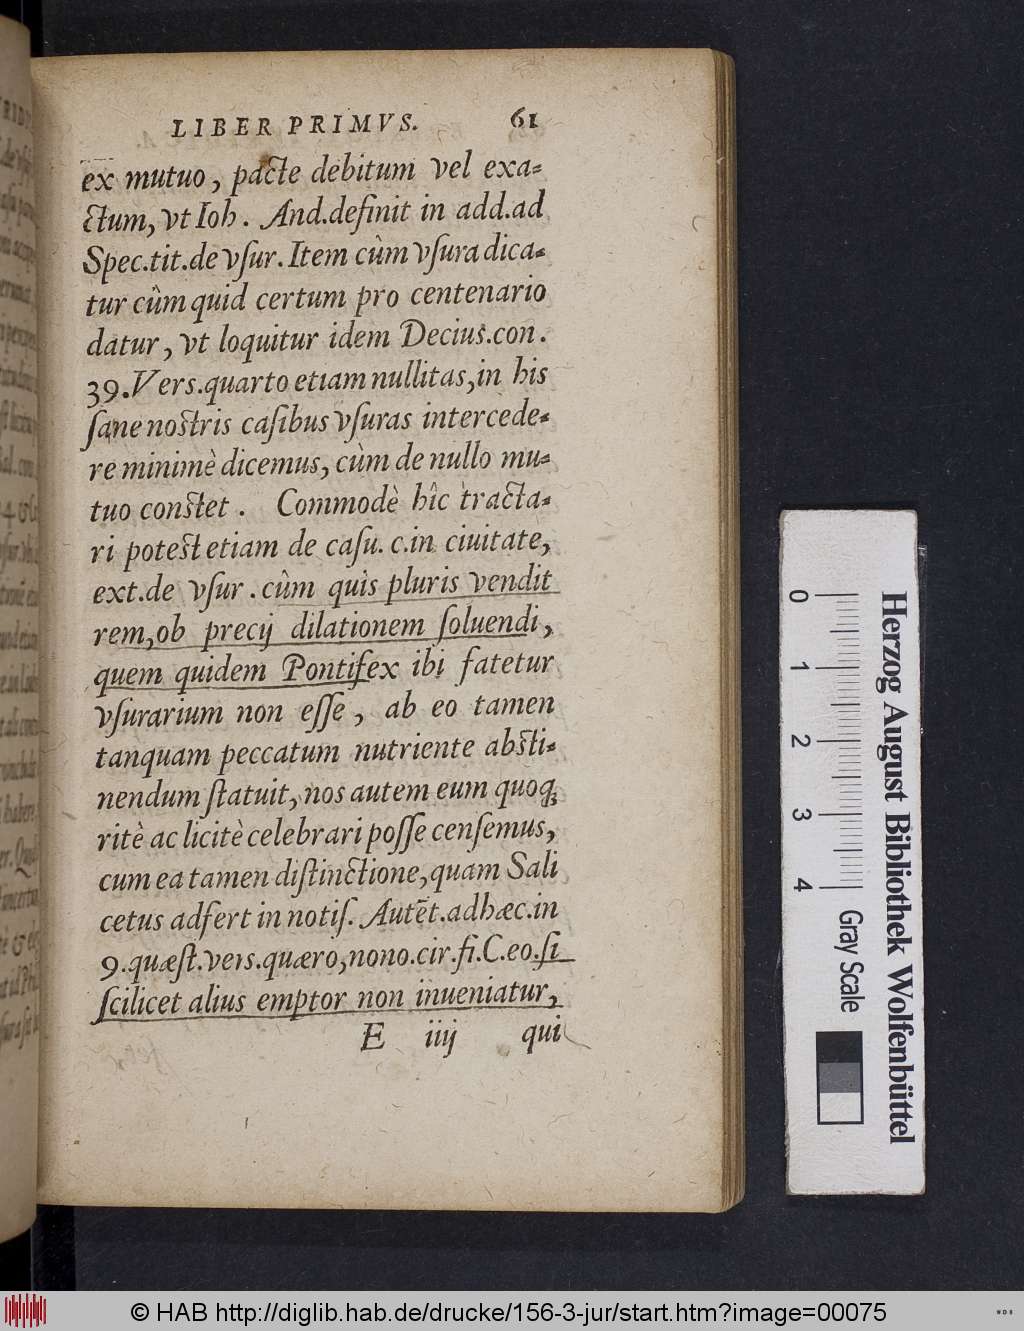 LIBER PRIMVS. 61
ex mutuo, pacte debitum vel exa-
ctum, vt Ioh. And. definit in add. ad
Spec. tit. de vſur. Item cùm vſura dica-
tur cûm quid certum pro centenario
datur, vt loquitur idem Decius. con.
39. Vers. quarto etiam nullitas, in his
ſane nostris caſibus vſuras intercede-
re minimè dicemus, cùm de nullo mu-
tuo constet. Commodè hîc tracta-
ri potest etiam de caſu. c. in ciuitate,
ext. de vſur. cûm quis pluris vendit
rem, ob precij dilationem ſoluendi,
quem quidem Pontifex ibi fatetur
vſurarium non eſſe, ab eo tamen
tanquam peccatum nutriente absti-
nendum ſtatuit, nos autem eum quoq;
ritè ac licitè celebrari poſſe cenſemus,
cum ea tamen diſtinctione, quam Sali
cetus adfert in notiſ. Autēt. ad hæc. in
9. quæſt. vers. quæro, nono. cir. fi. C. eo. ſi
ſcilicet alius emptor non inueniatur,
E iiij qui
Herzog August Bibliothek Wolfenbüttel
0 1 2 3 4
Gray Scale
© HAB http://diglib.hab.de/drucke/156-3-jur/start.htm?image=00075